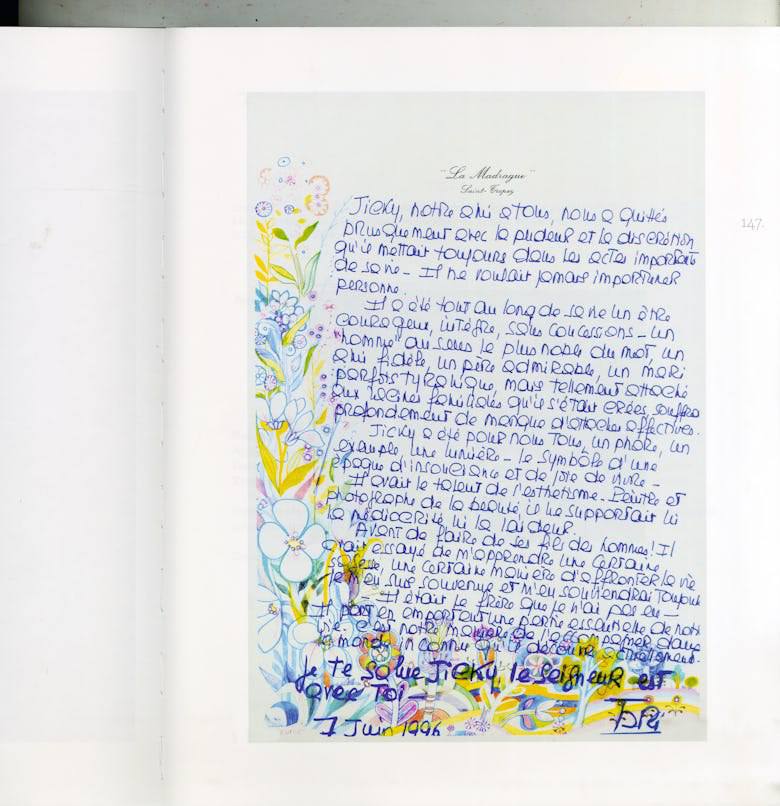 "La Madrague"
Saint-Tropez
147.
Jicky, notre ami à tous, nous a quittés
brusquement avec la pudeur et la discrétion
qu'il mettait toujours dans les actes importants
de sa vie - Il ne voulait jamais importuner
personne.
Il a été tout au long de sa vie un être
courageux, intègre, sans concessions - un
"homme" au sens le plus noble du mot, un
ami fidèle, un père admirable, un mari
parfois tyrannique, mais tellement attaché
aux racines familiales qu'il s'était créées, souffrant
profondément de manque d'attaches affectives.
Jicky a été pour nous tous, un phare, un
exemple, une lumière - le symbole d'une
époque d'insouciance et de joie de vivre -
Il avait le talent de l'esthétisme - Peintre et
photographe de la beauté, il ne supportait ni
la médiocrité ni la laideur.
Avant de faire de ses fils des hommes ! Il
avait essayé de m'apprendre une certaine
sagesse, une certaine manière d'affronter la vie
je m'en suis souvenue et m'en souviendrai toujours
- Il était le frère que je n'ai pas eu -
Il part en emportant une partie essentielle de notre
vie. C'est notre manière de l'accompagner dans
le monde inconnu qu'il découvre
je te salue Jicky, le seigneur est
avec toi -
7 Juin 1996